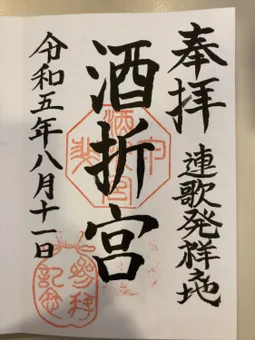 奉拝
連歌発祥地
酒折宮
令和五年八月十一日
参拝記念